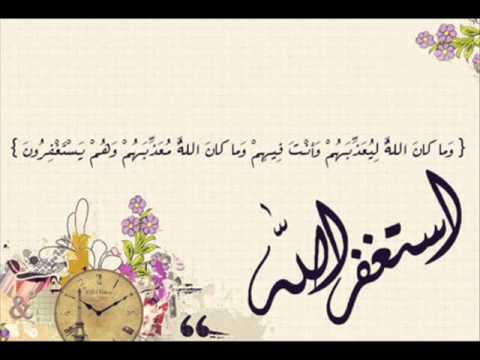 { وَمَا كَانَ اللهُ لِيُعَذِّبَهُمْ وَأَنْتَ فِيهِمْ وَمَا كَانَ اللهُ مُعَذِّبَهُمْ وَهُمْ يَسْتَغْفِرُونَ }
استغفر الله
&